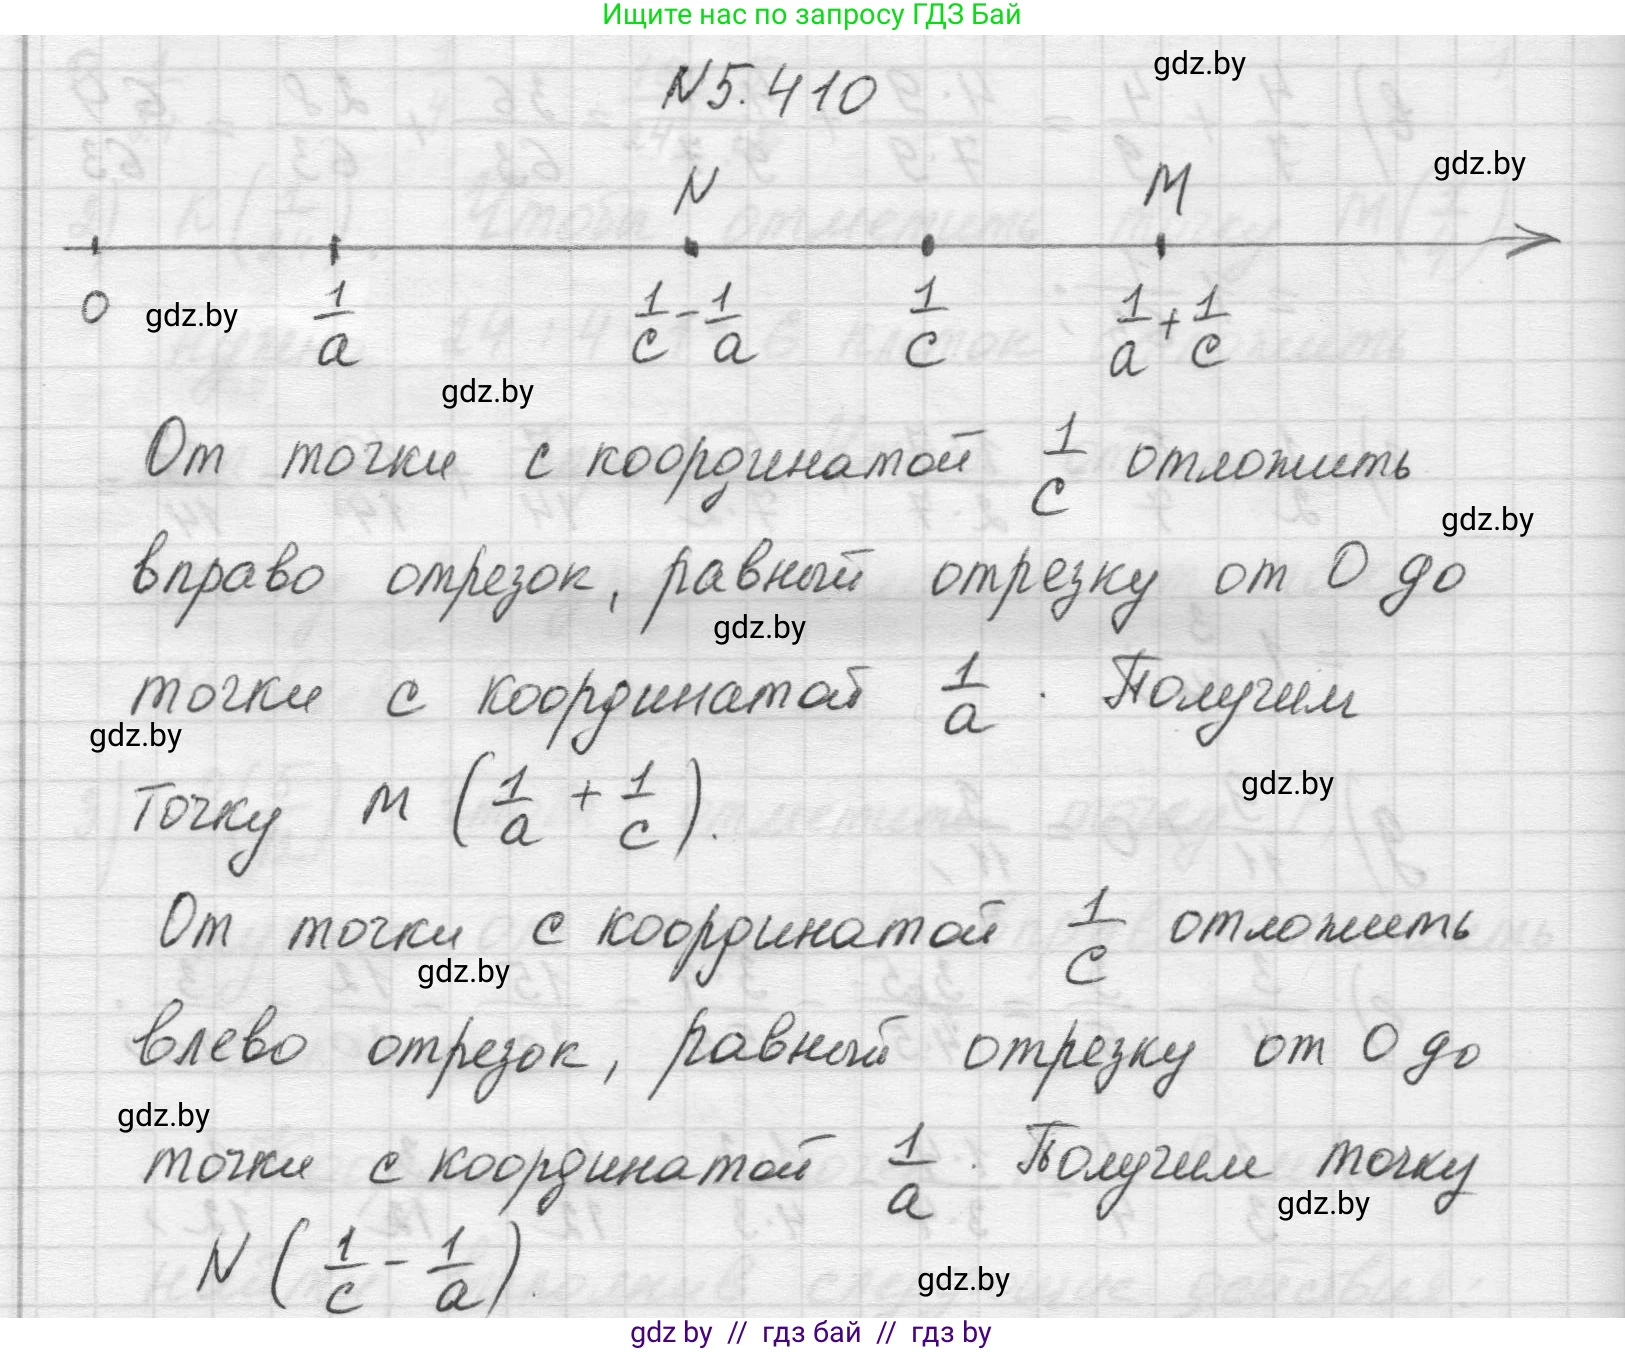 Ищите нас по запросу ГДЗ Бай
N5.410
gdz.by
gdz.by
N M
0 1/a 1/c - 1/a 1/c 1/a + 1/c
gdz.by
gdz.by
От точки с координатой 1/c отложить
gdz.by
вправо отрезок, равный отрезку от 0 до
gdz.by
точки с координатой 1/a. Получим
gdz.by
gdz.by
точку M (1/a + 1/c).
От точки с координатой 1/c отложить
gdz.by
влево отрезок, равный отрезку от 0 до
gdz.by
точки с координатой 1/a. Получим точку
gdz.by
N (1/c - 1/a).
gdz.by
gdz by // гдз бай // гдз by